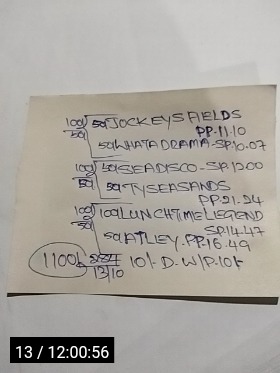 100/50 50 JOCKEYS FIELDS
PP.11.10
50 WHAT A DRAMA - SP.10.07
50 SEADISCO - SP.12.00
50 TYSEASANDS
PP.21.24
100 LUNCHTIME LEGEND
SP.14.47
50 ATLEY. PP.16.49
1100 10/- D. W/P. 10/-
12/10
13 / 12:00:56